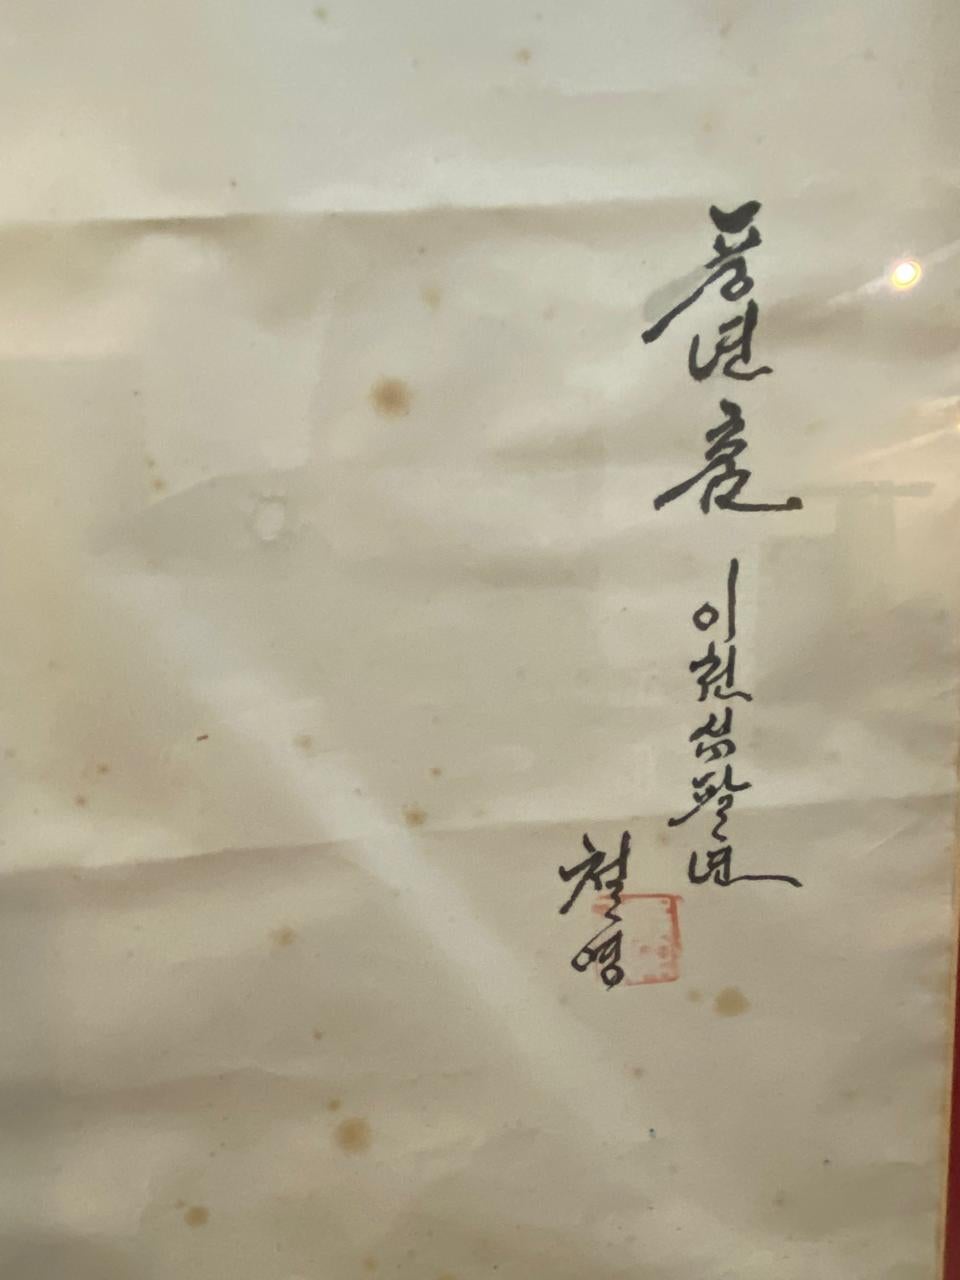 풍년춤 이천십팔년
철영